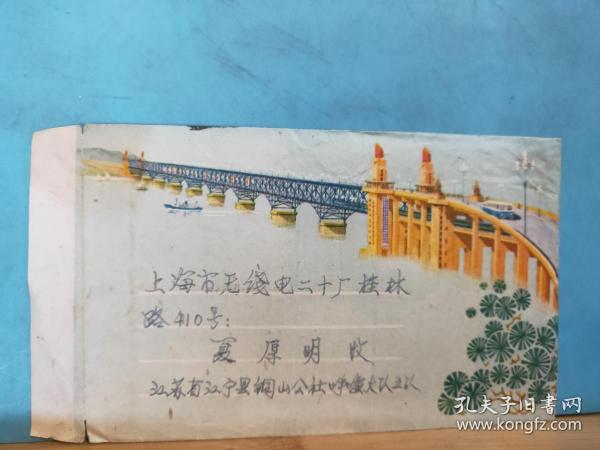 上海市无线电二十厂桂林
路410号：
夏原明收
江苏省江宁县铜山公社大队五队
孔夫子旧书网
www.kongfz.com